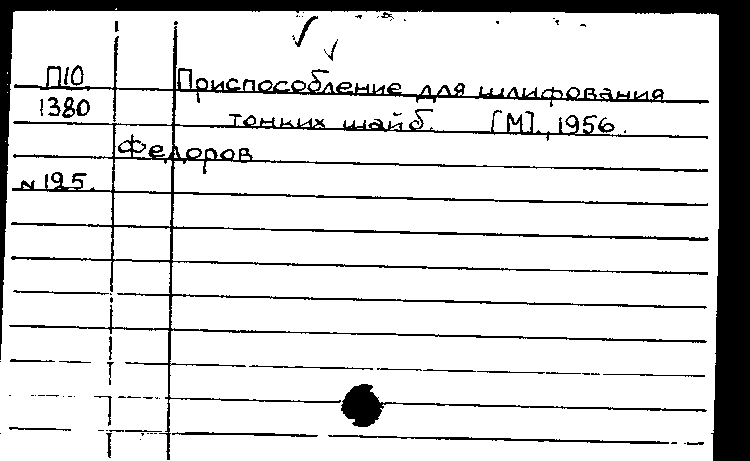 П10 Приспособление для шлифования
1380 тонких шайб. [М]., 1956.
Федоров
N 195.